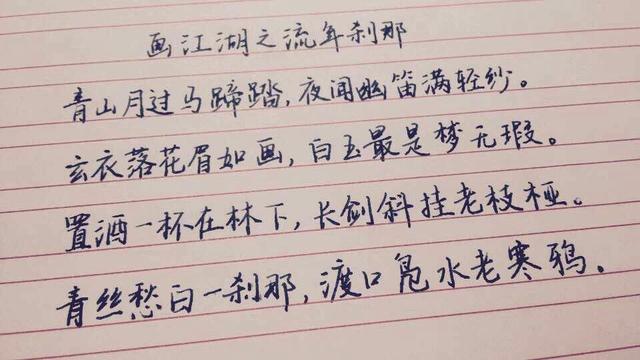 画江湖之流年刹那
青山月过马蹄踏,夜闻幽笛满轻纱。
玄衣落花眉如画,白玉最是梦无瑕。
置酒一杯在林下,长剑斜挂老枝桠。
青丝愁白一刹那,渡口凫水老寒鸦。